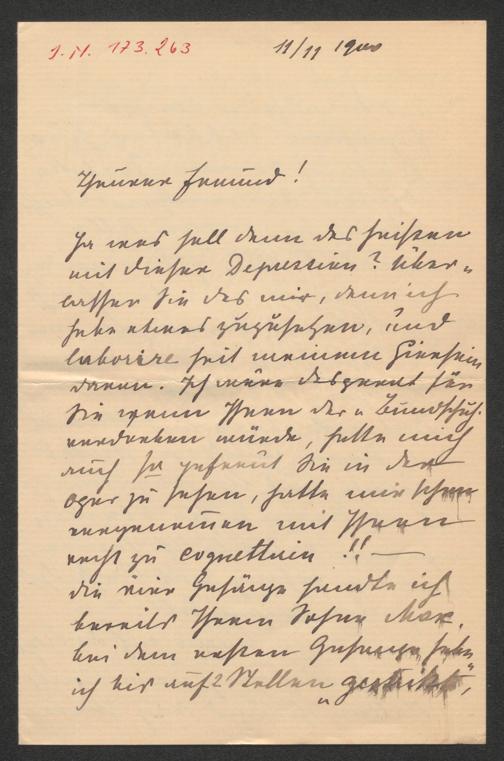 J.N. 173.263
11/11 1900
Theurer Freund!
Ja was soll denn das heißen
mit dieser Depression? Über-
lassen Sie das mir, denn ich
habe etwas zuzusetzen, und
laborire seit meinem Hiersein
daran. Ich wäre desperat für
Sie wenn Ihnen der „Bundschuh"
verdorben würde, hatte mich
auch so gefreut Sie in der
Oper zu sehen, hatte mir schon
vorgenommen mit Ihnen
recht zu coquettiren!! —
die vier Gesänge sandte ich
bereits Ihrem Sohne Max.
bei dem ersten Gesange habe
ich bis auf 2 Stellen „gestrickt",